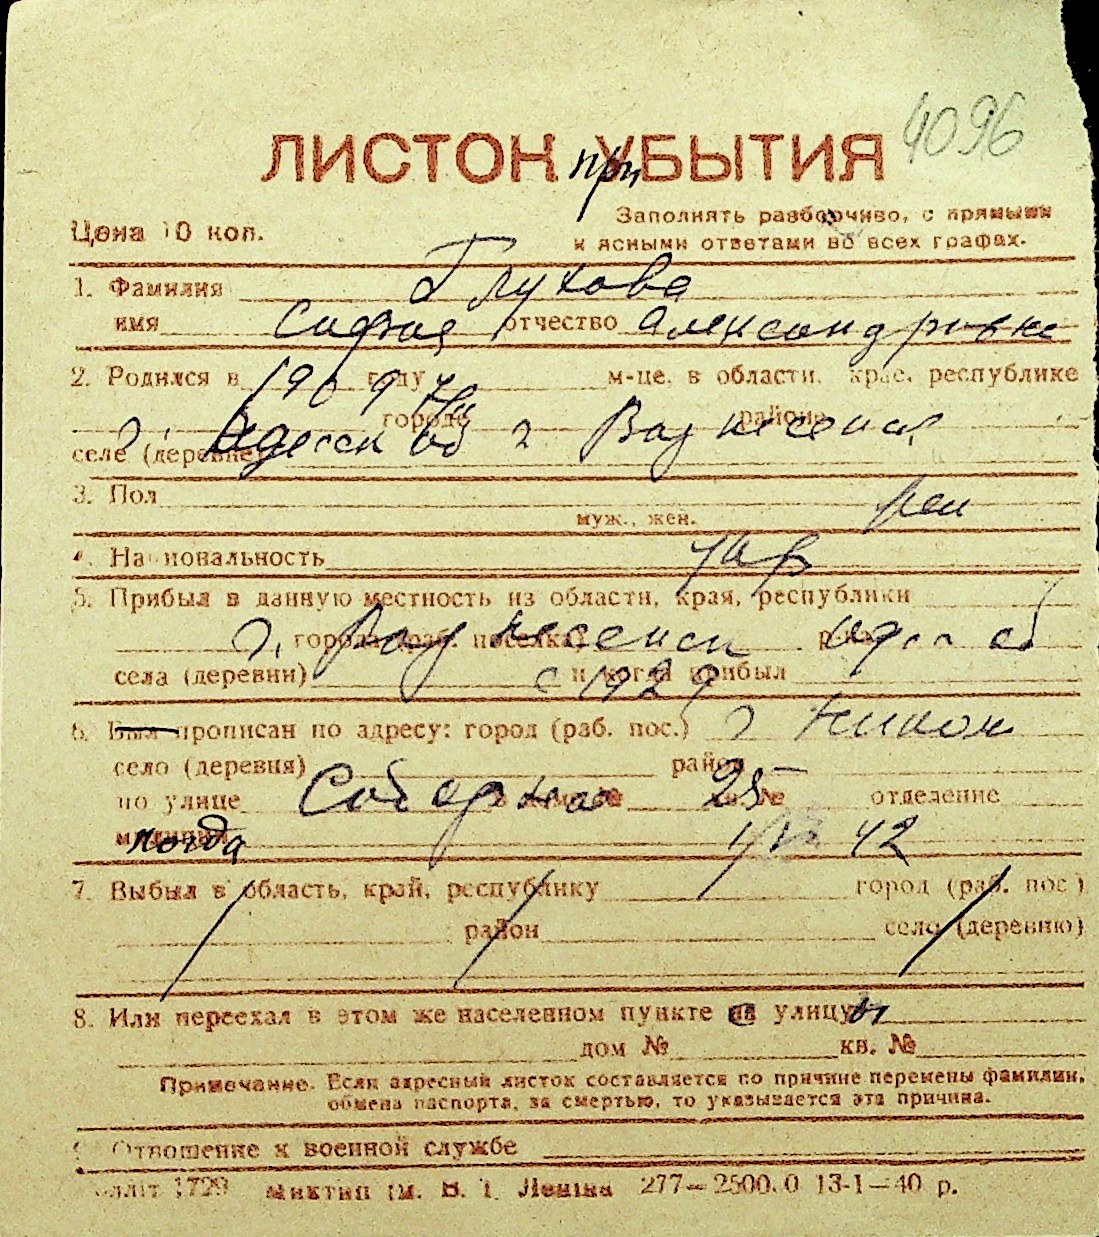 4096
ЛИСТОК при УБЫТИЯ
Цена 10 коп.
Заполнять разборчиво, с прямыми
и ясными ответами во всех графах.
1. Фамилия Глухова
имя София отчество Александровна
2. Родился в 1909 году м-це, в области, крае, республике
городе районе
селе (деревне) г. Одесск об г Вознесенск
3. Пол жен
муж., жен.
4. Национальность укр
5. Прибыл в данную местность из области, края, республики
г. города (раб. поселка) Вознесенск р-на Одес об
села (деревни) и когда прибыл с 1929
6. Был прописан по адресу: город (раб. пос.) г Никол
село (деревня) район
по улице Соборная 25 № отделение
милиции когда 42
7. Выбыл в область, край, республику город (раб. пос.)
район село (деревню)
8. Или переехал в этом же населенном пункте с на улицу ы
дом № кв. №
Примечание. Если адресный листок составляется по причине перемены фамилии,
обмена паспорта, за смертью, то указывается эта причина.
9. Отношение к военной службе
1729 ім. В. І. Леніна 277—2500.0 13-1—40 р.